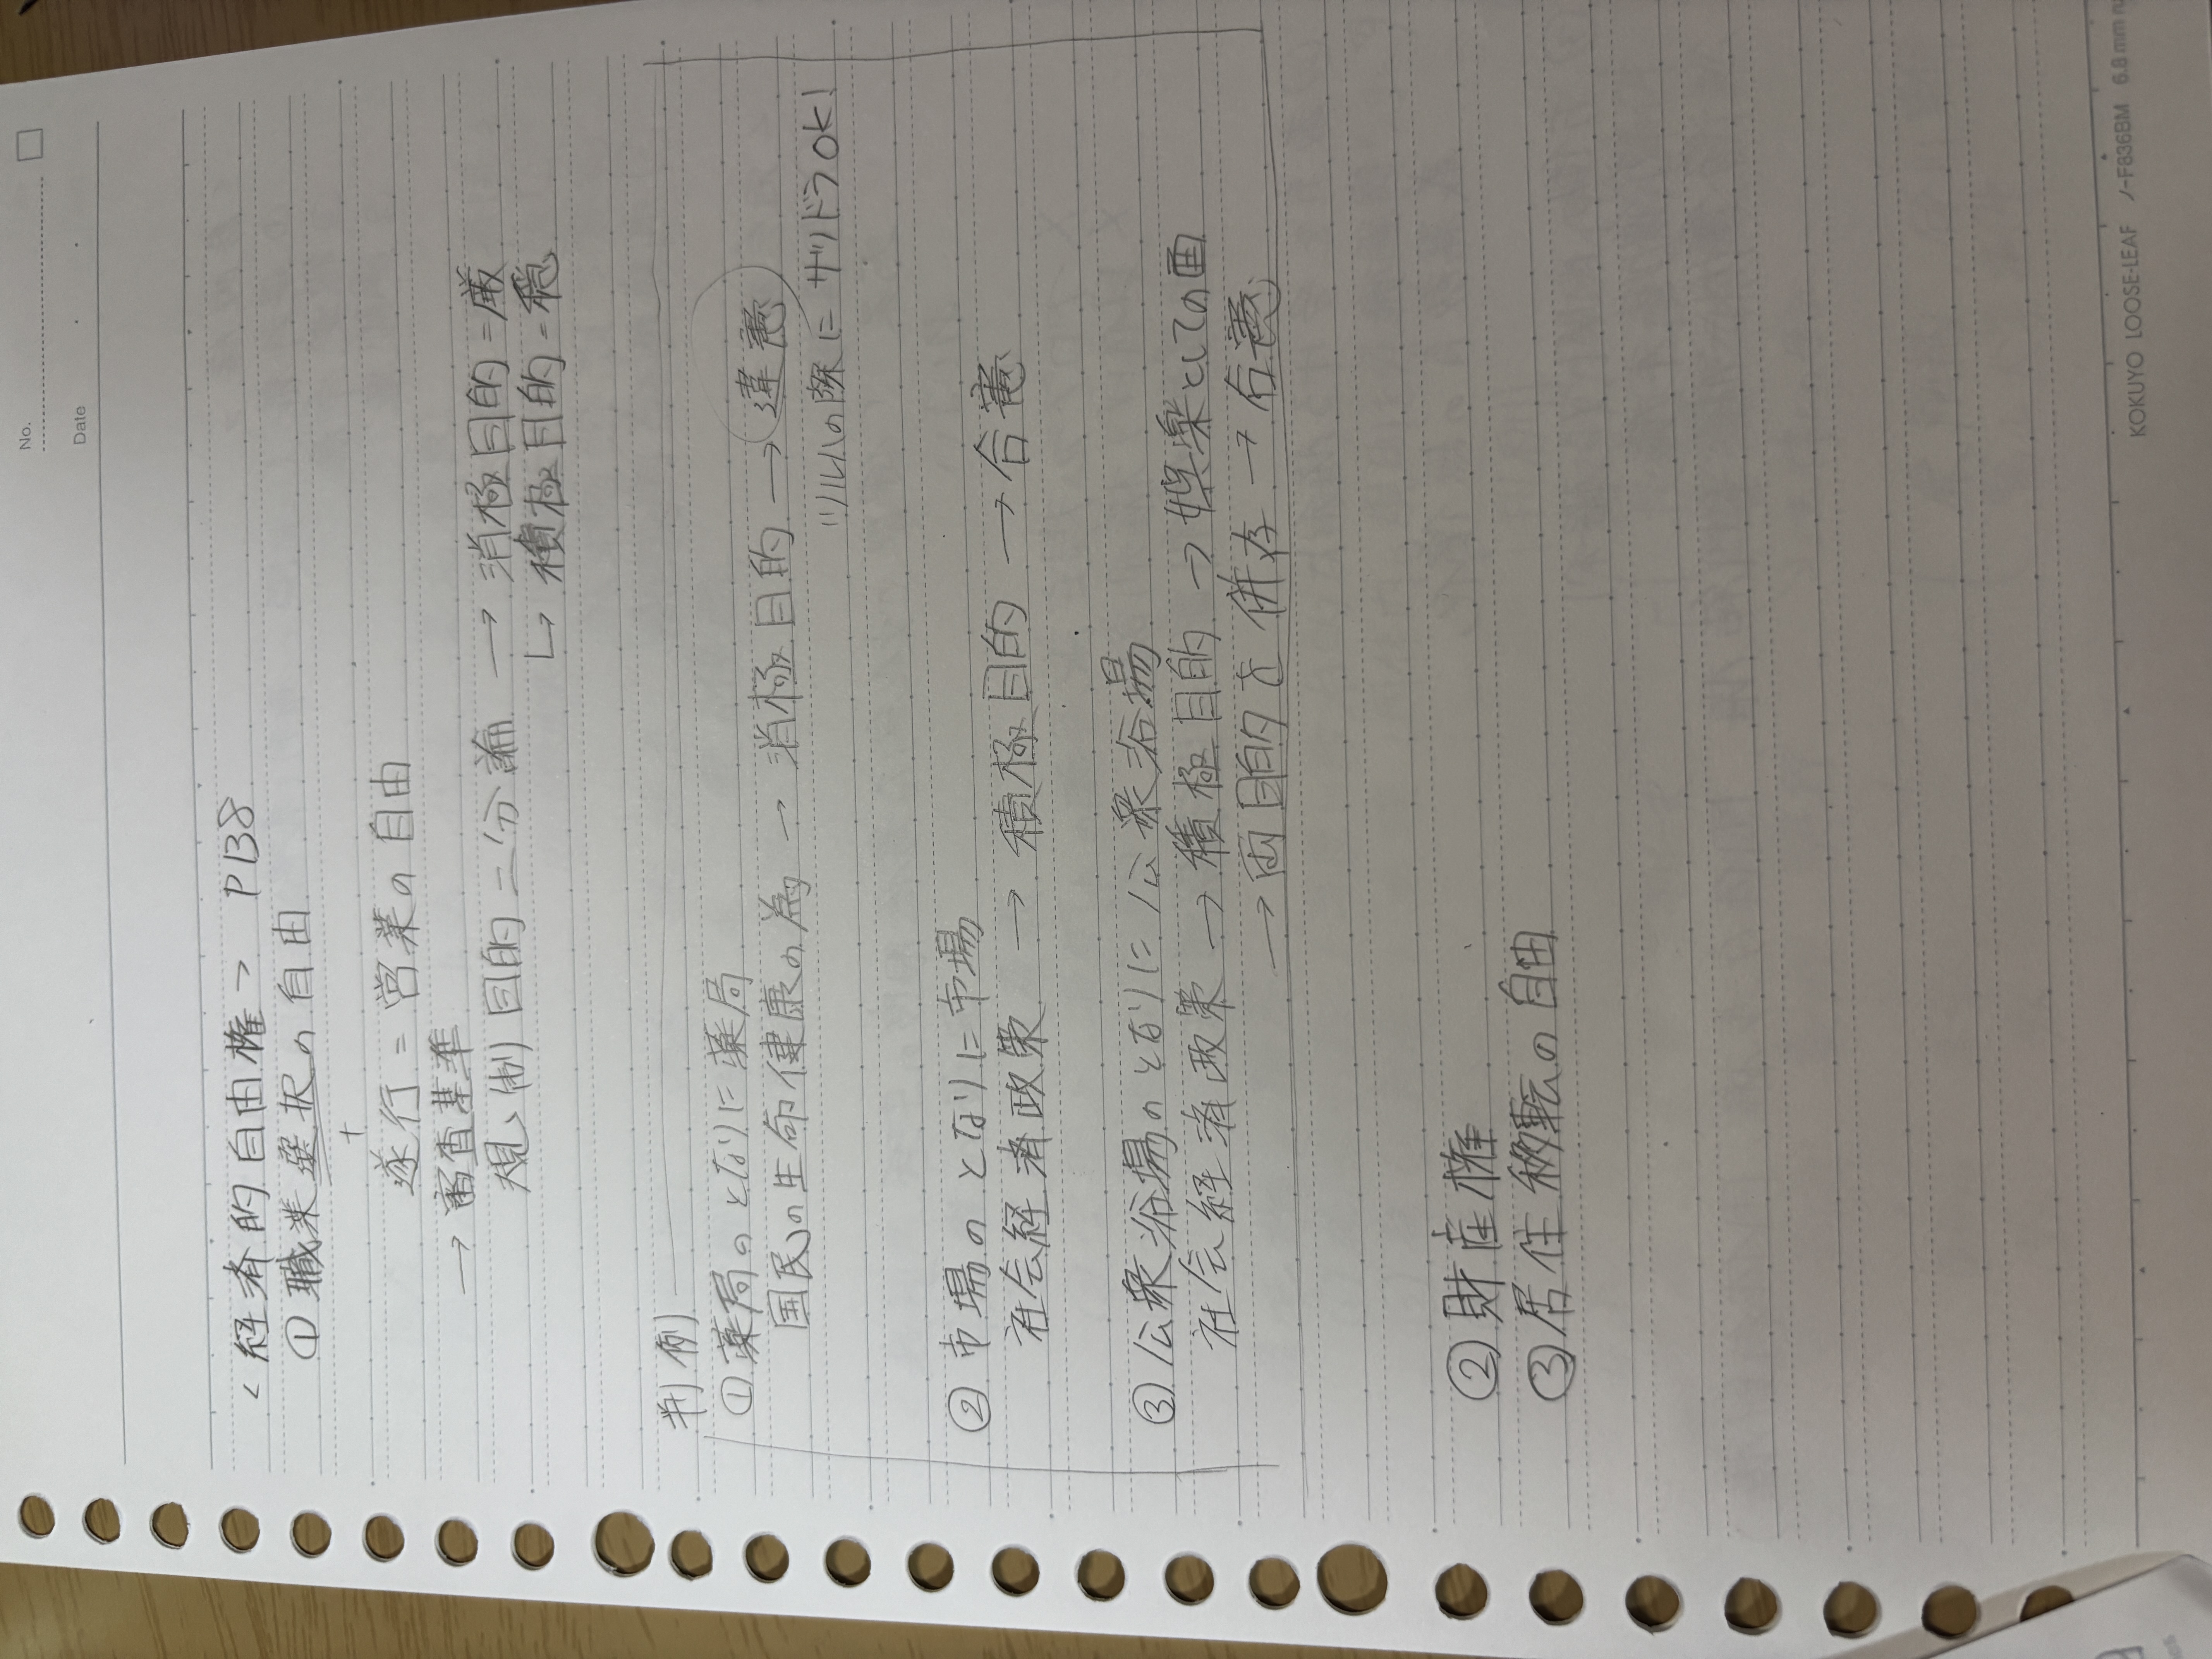 No.
Date
<経済的自由権> P138
①職業選択の自由
+
遂行=営業の自由
→審査基準
規制目的二分論 → 消極目的=厳
↳ 積極目的=穏
判例
①薬局のとなりに薬局
国民の生命健康の為 → 消極目的 → 違憲
ツルハの隣にサツドラOK!
②市場のとなりに市場
社会経済政策 → 積極目的 → 合憲
③公衆浴場のとなりに公衆浴場
社会経済政策 → 積極目的 → 娯楽としての面
→両目的を併存 → 合憲
②財産権
③居住移転の自由
KOKUYO LOOSE-LEAF ノ-F836BM 6.8mm